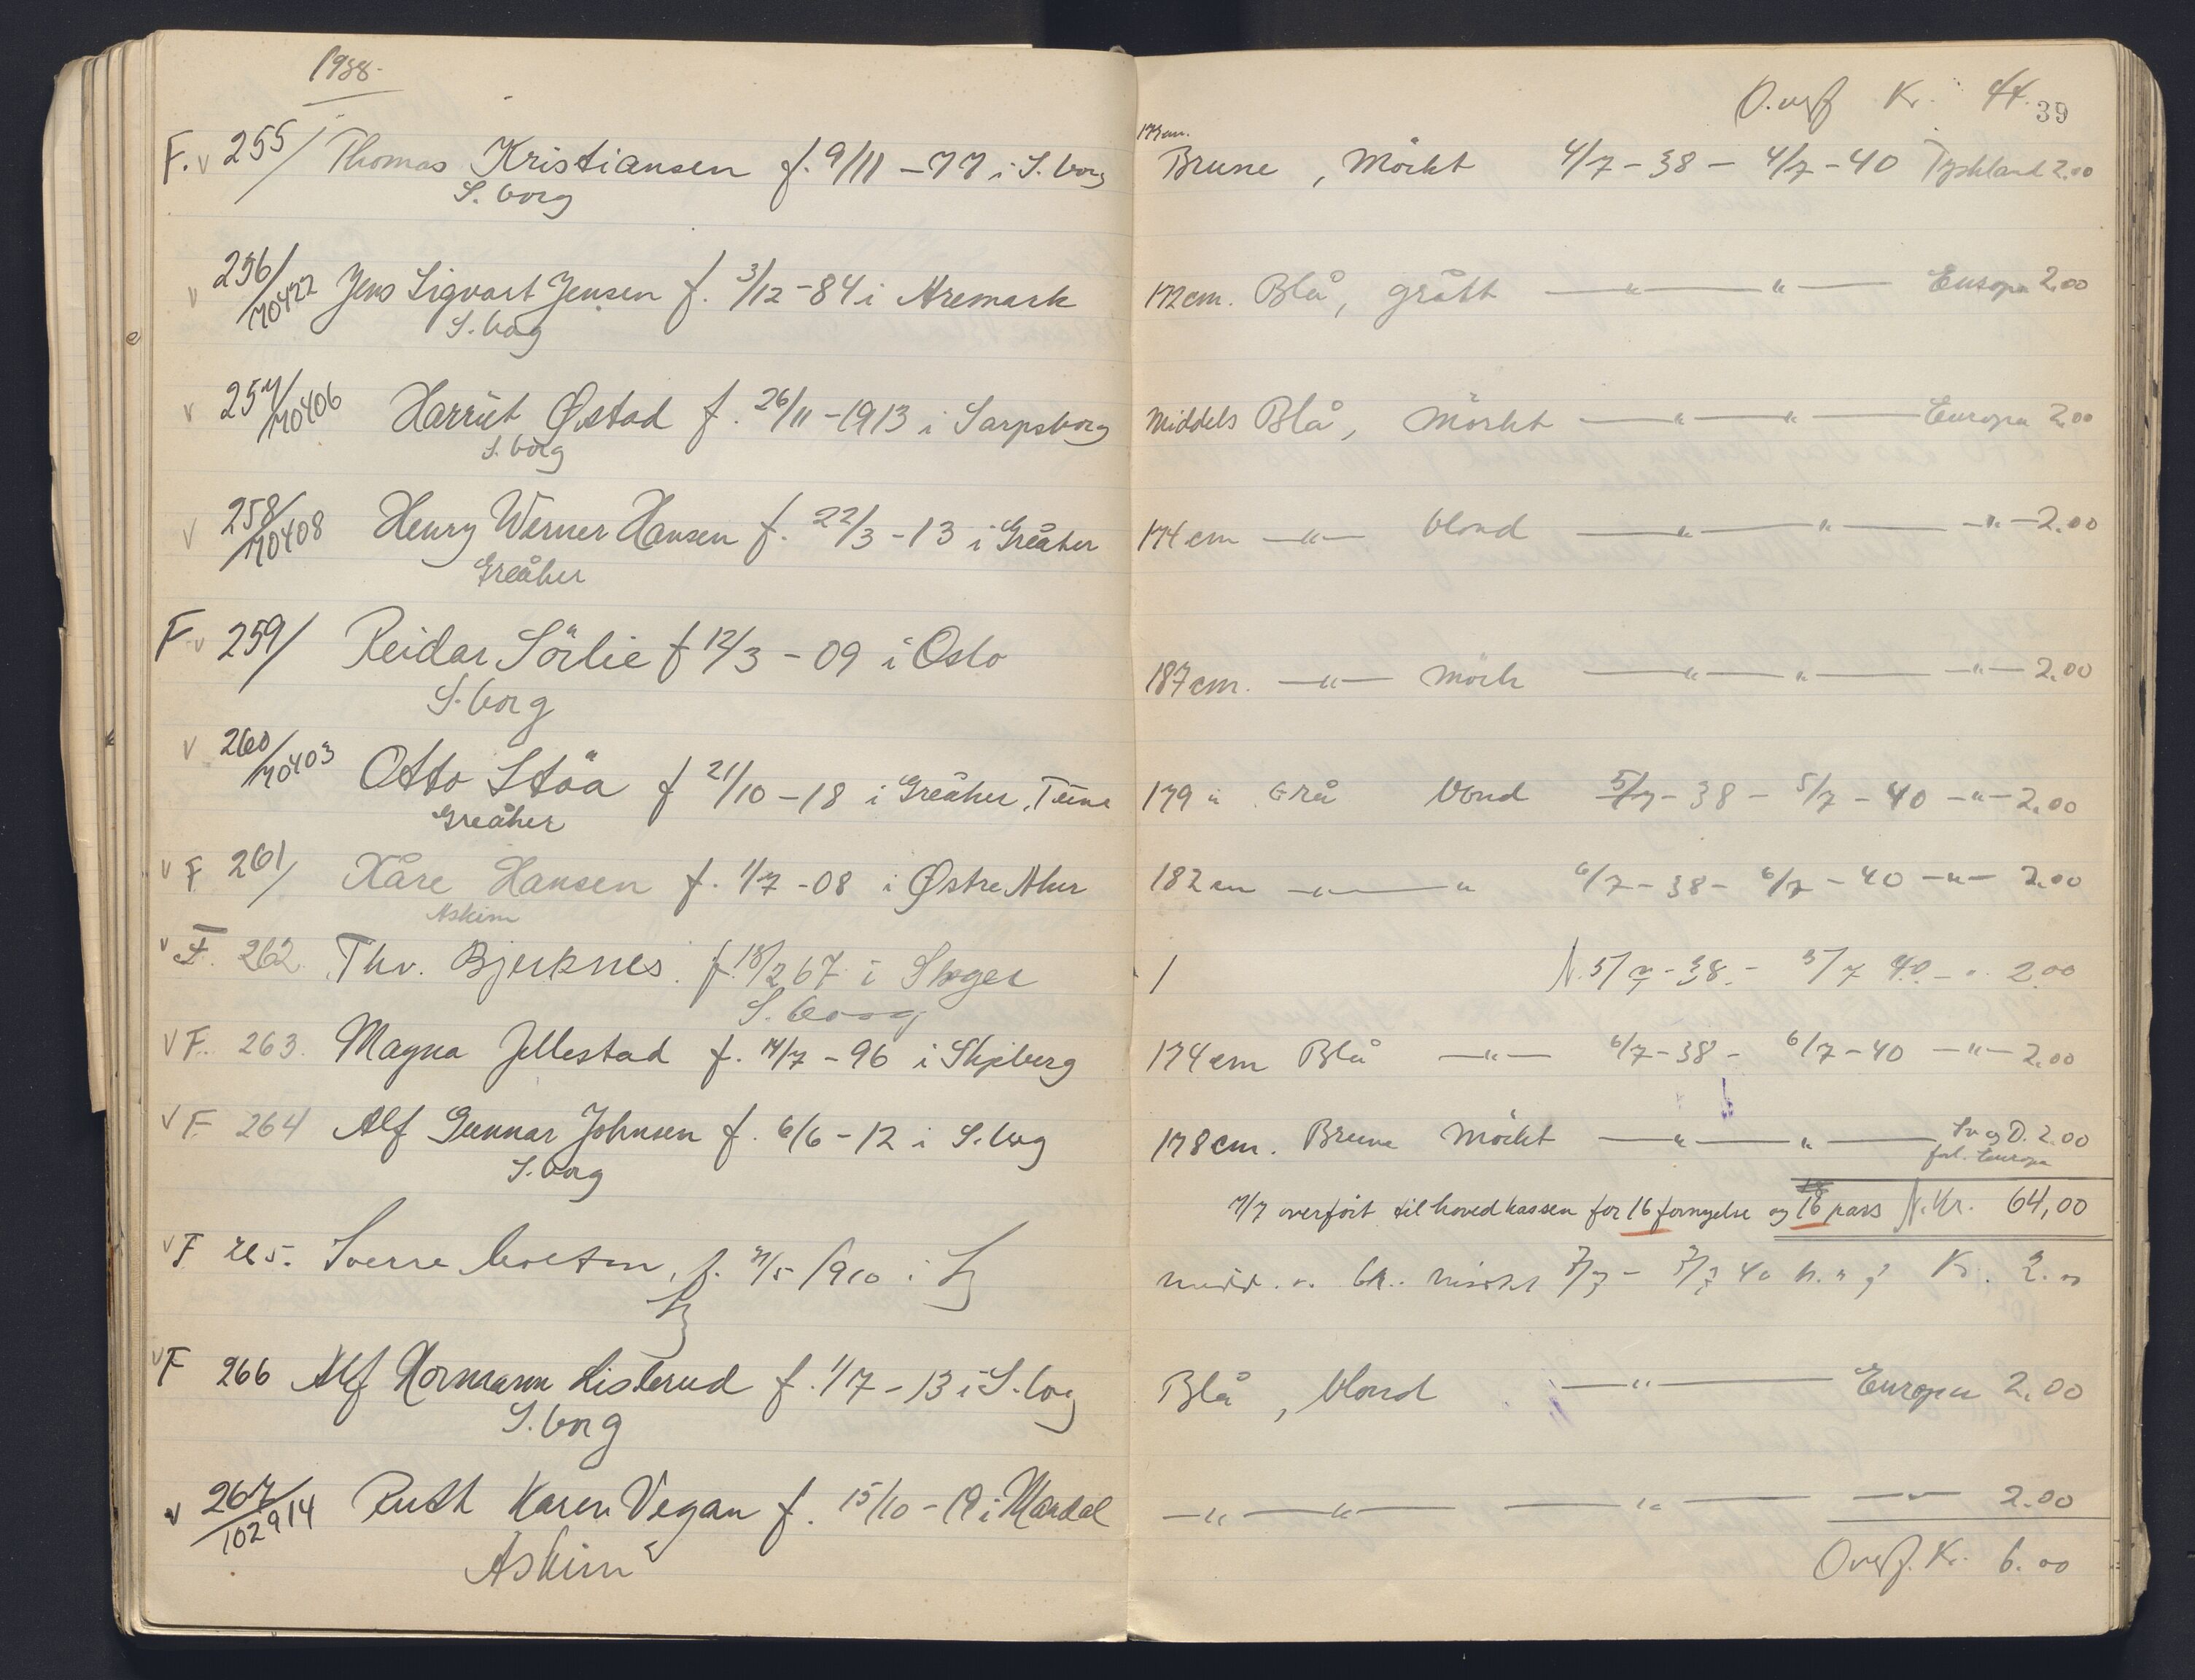 1938.
O.verf Kr. 44. 39
F. v 255/ Thomas Kristiansen f. 9/11 - 77 i S.borg
173 cm. Brune, Mörkt 4/7 - 38 - 4/7 - 40 Tyskland 2.00
S.borg
v 256/70422 Jens Sigvart Jensen f. 3/12 - 84 i Aremark
172 cm. Blå, grått — " — " — Europa 2.00
S.borg
v 257/70406 Harriet Østad f. 26/11 - 1913 i Sarpsborg
Middels Blå, Mörkt — " — " — Europa 2.00
S.borg
v 258/70408 Henry Werner Hansen f. 22/3 - 13 i Greåker
174 cm — " — blond — " — " — — " — 2.00
Greåker
F v 259/ Reidar Sörlie f 12/3 - 09 i Oslo
187 cm. — " — mörk — " — " — — " — 2.00
S.borg
v 260/70403 Otto Stöa f 21/10 - 18 i Greåker, Tune
179 " Grå blond 5/7 - 38 - 5/7 - 40 — " — 2.00
Greåker
v F 261/ Kåre Hansen f. 1/7 - 08 i Østre
182 cm — " — " 6/7 - 38 - 6/7 - 40 — " — 2.00
Askim
v F. 262. Thv. Bjerknes. f. 18/2 67 i Skoger
/ N. 5/7 - 38. - 5/7 40 - " 2.00
S.borg
v F. 263. Magna Jellestad f. 14/7 - 96 i Skjeberg
174 cm Blå — " — 6/7 - 38 - 6/7 - 40 — " — 2.00
v F 264 Alf Gunnar Johnsen f. 6/6 - 12 i S.borg
178 cm. Brune Mörkt — " — " — Sv og D. 2.00
S.borg
Europa
7/7 overfört til hovedkassen for 16 fornyelse og 16 pass N.Kr. 64,00
v F 265. Sverre f. 7/5 1910 i
midd. 7/7 - 7/7 40 Kr. 2.00
v F 266 Alf Normann Lislerud f. 1/7 - 13 i S.borg
Blå, blond — " — Europa 2.00
S.borg
v 267/102914 Ruth Karen Vegan f. 15/10 - 19 i Mandal
— " — " — — " — — " — 2.00
Askim
Overf. Kr. 6.00